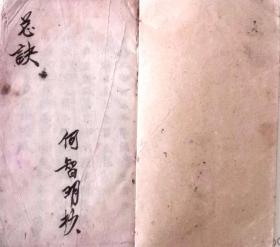 总訣
何智明抄